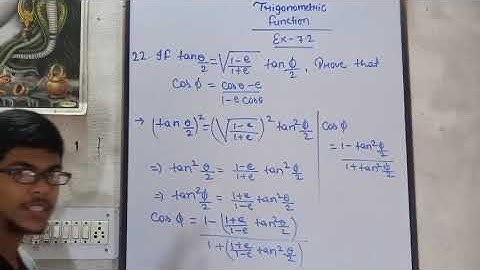 Trigonometric
function
Ex-7.2
22. If tan θ/2 = √(1-e/1+e) tan φ/2, Prove that
cos φ = cosθ-e/1-e cosθ
→ (tan θ/2)² = (√(1-e/1+e))² tan² φ/2
⇒ tan² θ/2 = 1-e/1+e tan² φ/2
⇒ tan² φ/2 = 1+e/1-e tan² θ/2
cos φ = 1-(1+e/1-e tan² θ/2)/1+(1+e/1-e tan² θ/2)
cos φ
= 1-tan² φ/2/1+tan² φ/2